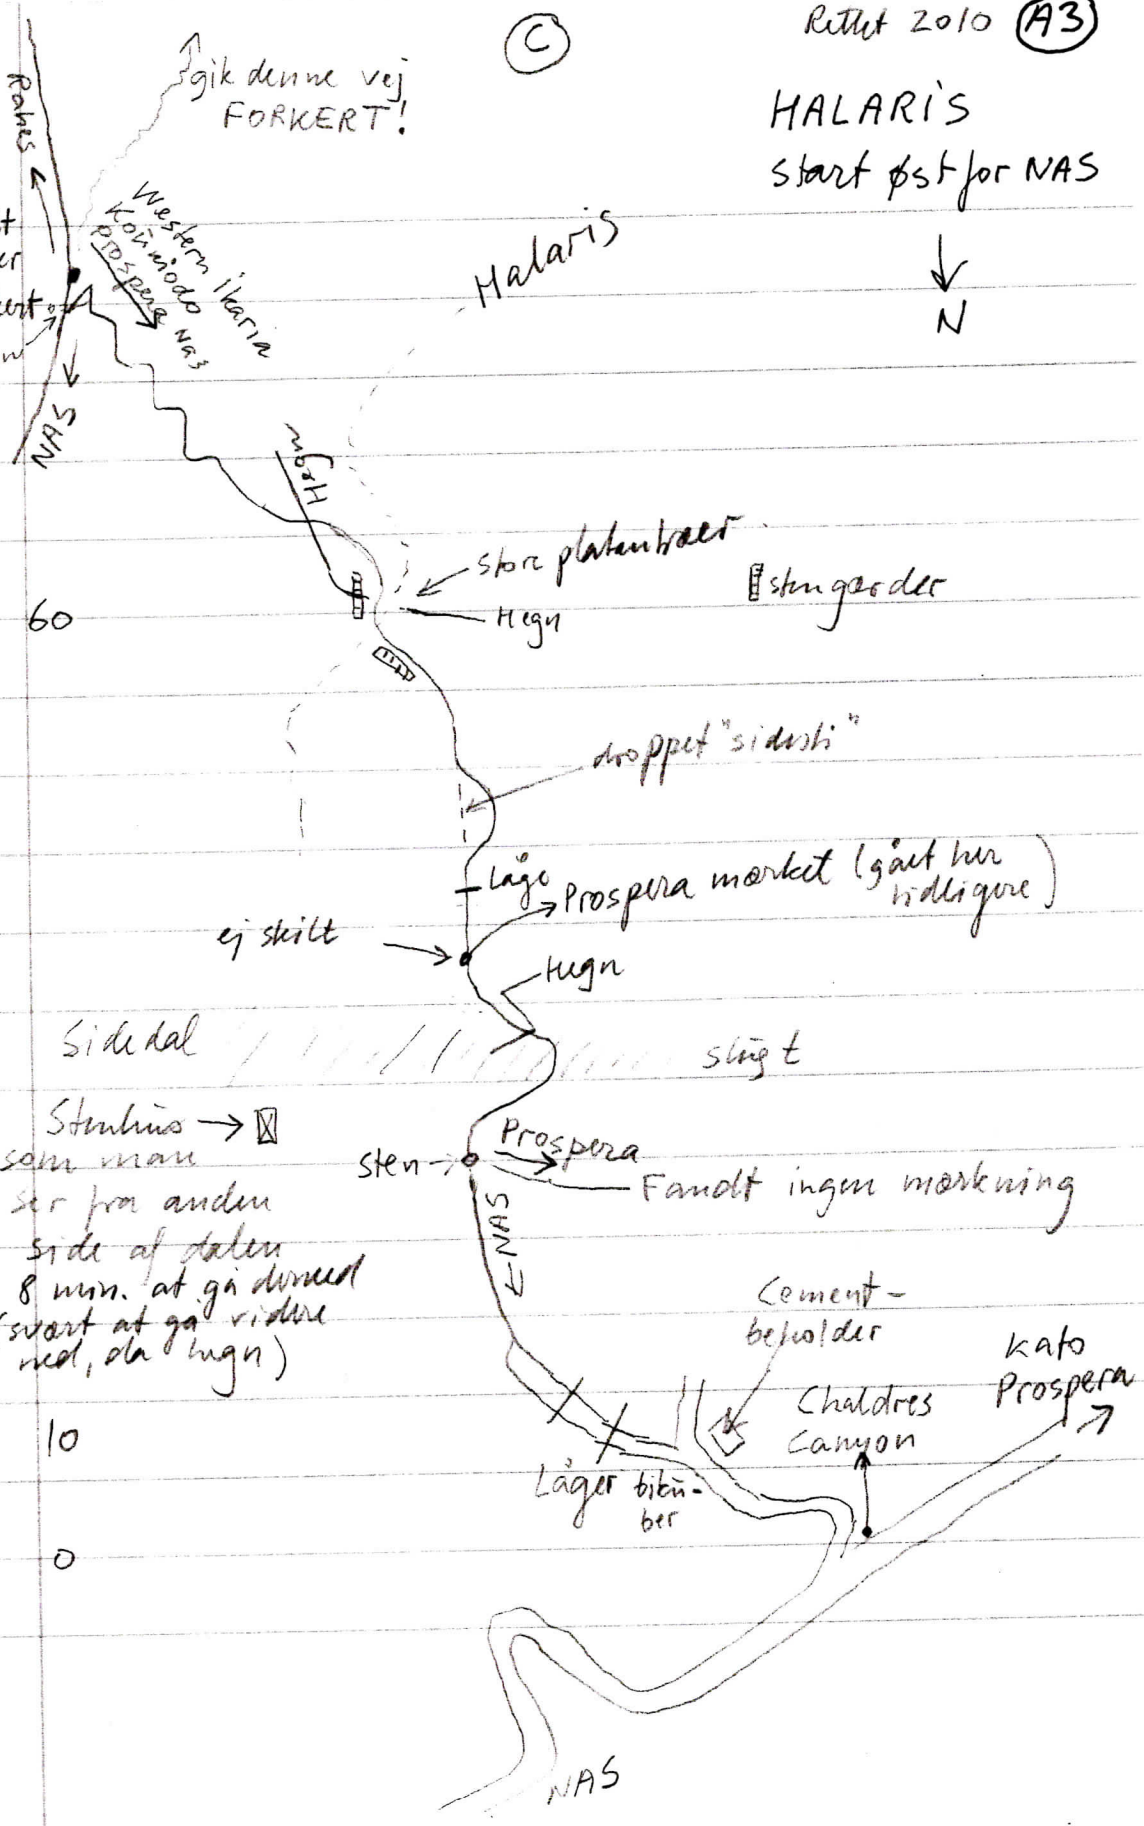 C
Rettet 2010 A3
HALARIS
start øst for NAS
N
gik denne vej
FORKERT!
Rahes
Western ikaria
Koúniado
Prospera
Nas
NAS
Halaris
Hegn
store platantræer
Hegn
stengærder
60
droppet "sidesti"
Låge
Prospera mærket (gået her
tidligere)
ej skilt
Hegn
Sidedal
slugt
Stenhus
som man
ser fra anden
side af dalen
8 min. at gå derned
(svært at gå videre
ned, da hegn)
sten
Prospera
Fandt ingen mærkning
NAS
Cement-
beholder
Kato
Prospera
Chaldres
Canyon
10
Låger
biku-
ber
0
NAS